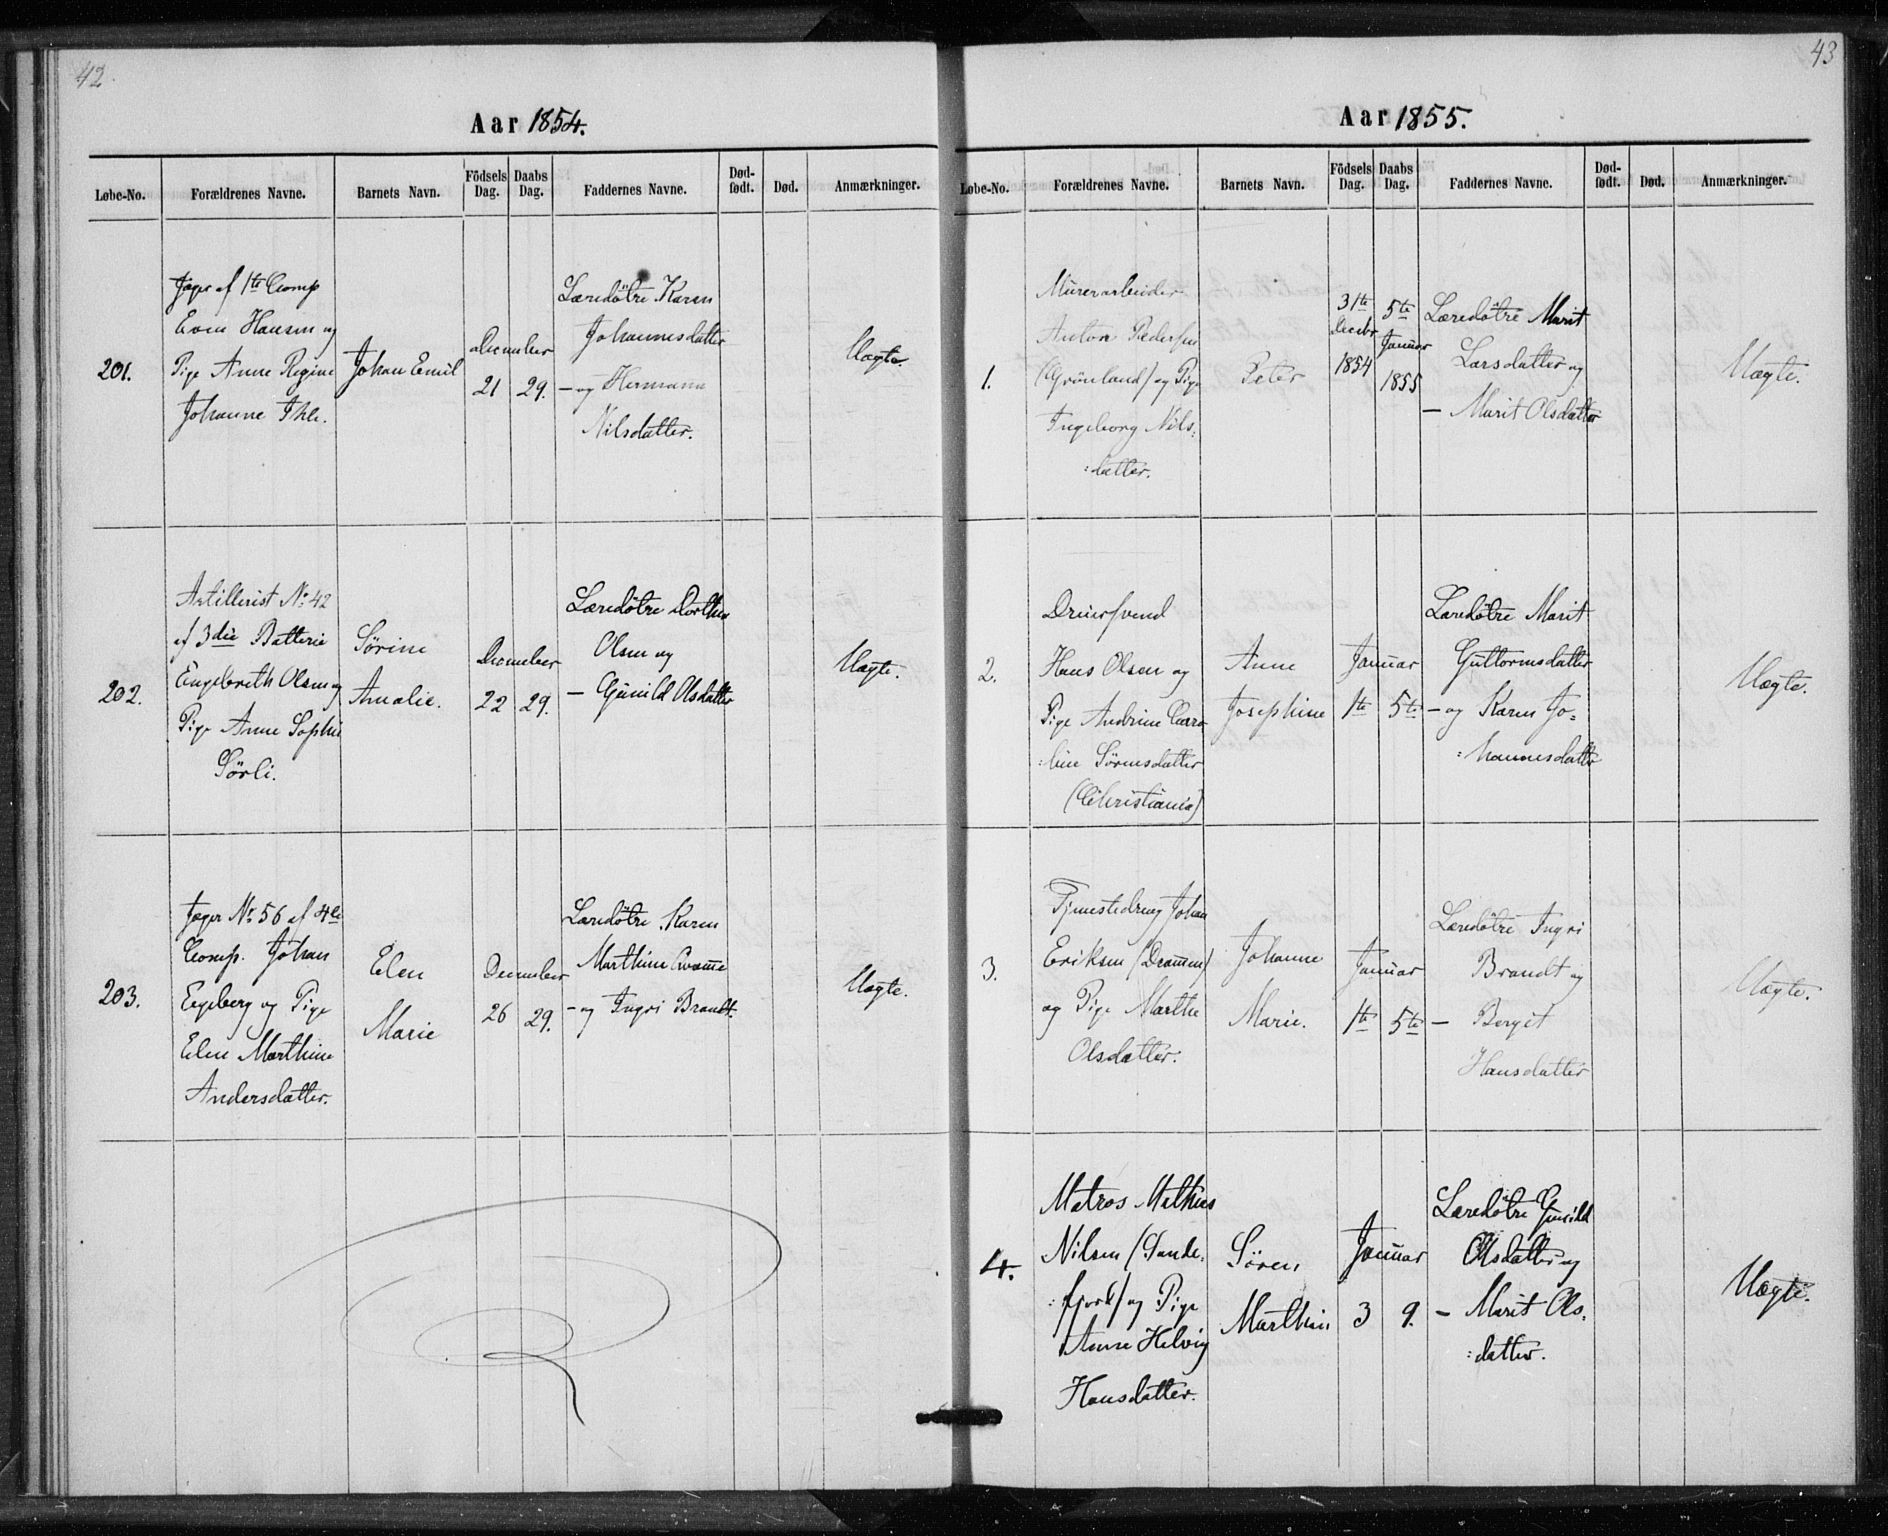 42.
Aar 1854.
Løbe-No. Forældrenes Navne. Barnets Navn. Födsels Dag. Daabs Dag. Faddernes Navne. Død-födt. Død. Anmærkninger.
201.
Jæger af 1te Comp
Even Hansen og
Pige Anne Regine
Johanne Ihle.
Johan Emil
December
21
29.
Læredötre Karen
Johannesdatter
- og Hermana
Nilsdatter.
Uægte.
202.
Artillerist No 42
af 3die Batterie
Engebreth Olsen og
Pige Anne Sophie
Sörli.
Sörine
Amalie.
December
22
29.
Læredötre Dorthea
Olsen og
- Gunild Olsdatter
Uægte.
203.
Jæger No 56 af 4de
Comp. Johan
Egeberg og Pige
Elen Marthine
Andersdatter.
Elen
Marie
December
26
29.
Læredötre Karen
Marthine
- og Ingri Brandt.
Uægte.
43
Aar 1855.
Løbe-No. Forældrenes Navne. Barnets Navn. Födsels Dag. Daabs Dag. Faddernes Navne. Død-födt. Død. Anmærkninger.
1.
Murerarbeider
Anton Pedersen
(Grönland) og Pige
Ingeborg Nils:
:datter.
Peter
31te
Decebr
1854
5te
Januar
1855
Læredötre Marit
Larsdatter og
- Marit Olsdatter
Uægte.
2.
Dreiersvend
Hans Olsen og
Pige Andrine Caro
:line Sörensdatter
(Christiania)
Anne
Josephine
Januar
1te
5te
Læredötre Marit
Guttormsdatter
- og Karen Jo:
:hannesdatter
Uægte.
3.
Tjenestedreng Johan
Eriksen (Drammen)
og Pige Marthe
Olsdatter.
Johanne
Marie.
Januar
1te
5te
Læredötre Ingri
Brandt og
- Bergit
Hansdatter
Uægte.
4.
Matros Mathias
Nilsen (Sande:
:fjord) og Pige
Anne Helvig
Hansdatter.
Sören
Marthin
Januar
3
9.
Læredötre Gunild
Olsdatter og
- Marit Ols.
:datter.
Uægte.